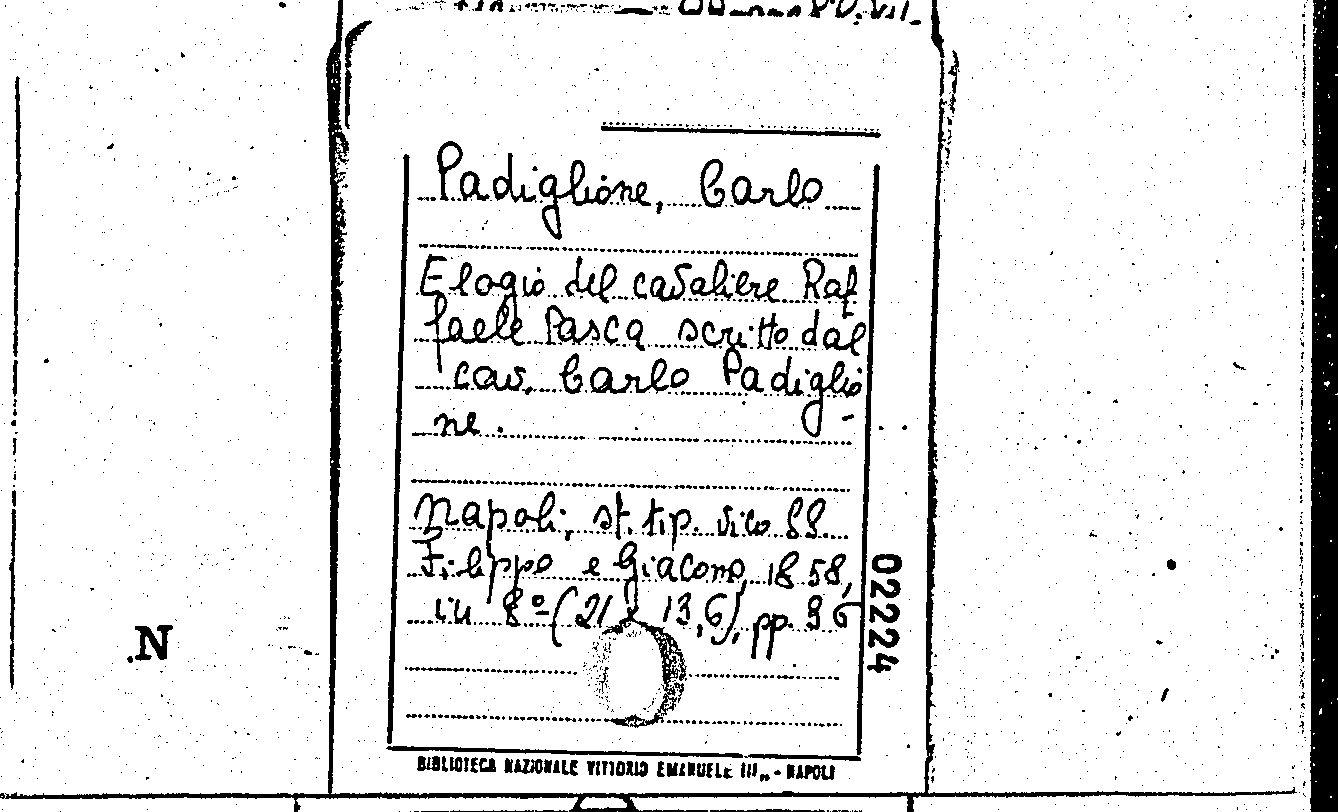 Padiglione, Carlo
Elogio del cavaliere Raf
faele Pasca scritto dal
cav. Carlo Padiglio-
ne.
Napoli, st. tip. vico SS.
Filippo e Giacomo, 1858,
in 8º (21 x 13,6), pp. 36
02224
.N
BIBLIOTECA NAZIONALE VITTORIO EMANUELE III„ - NAPOLI